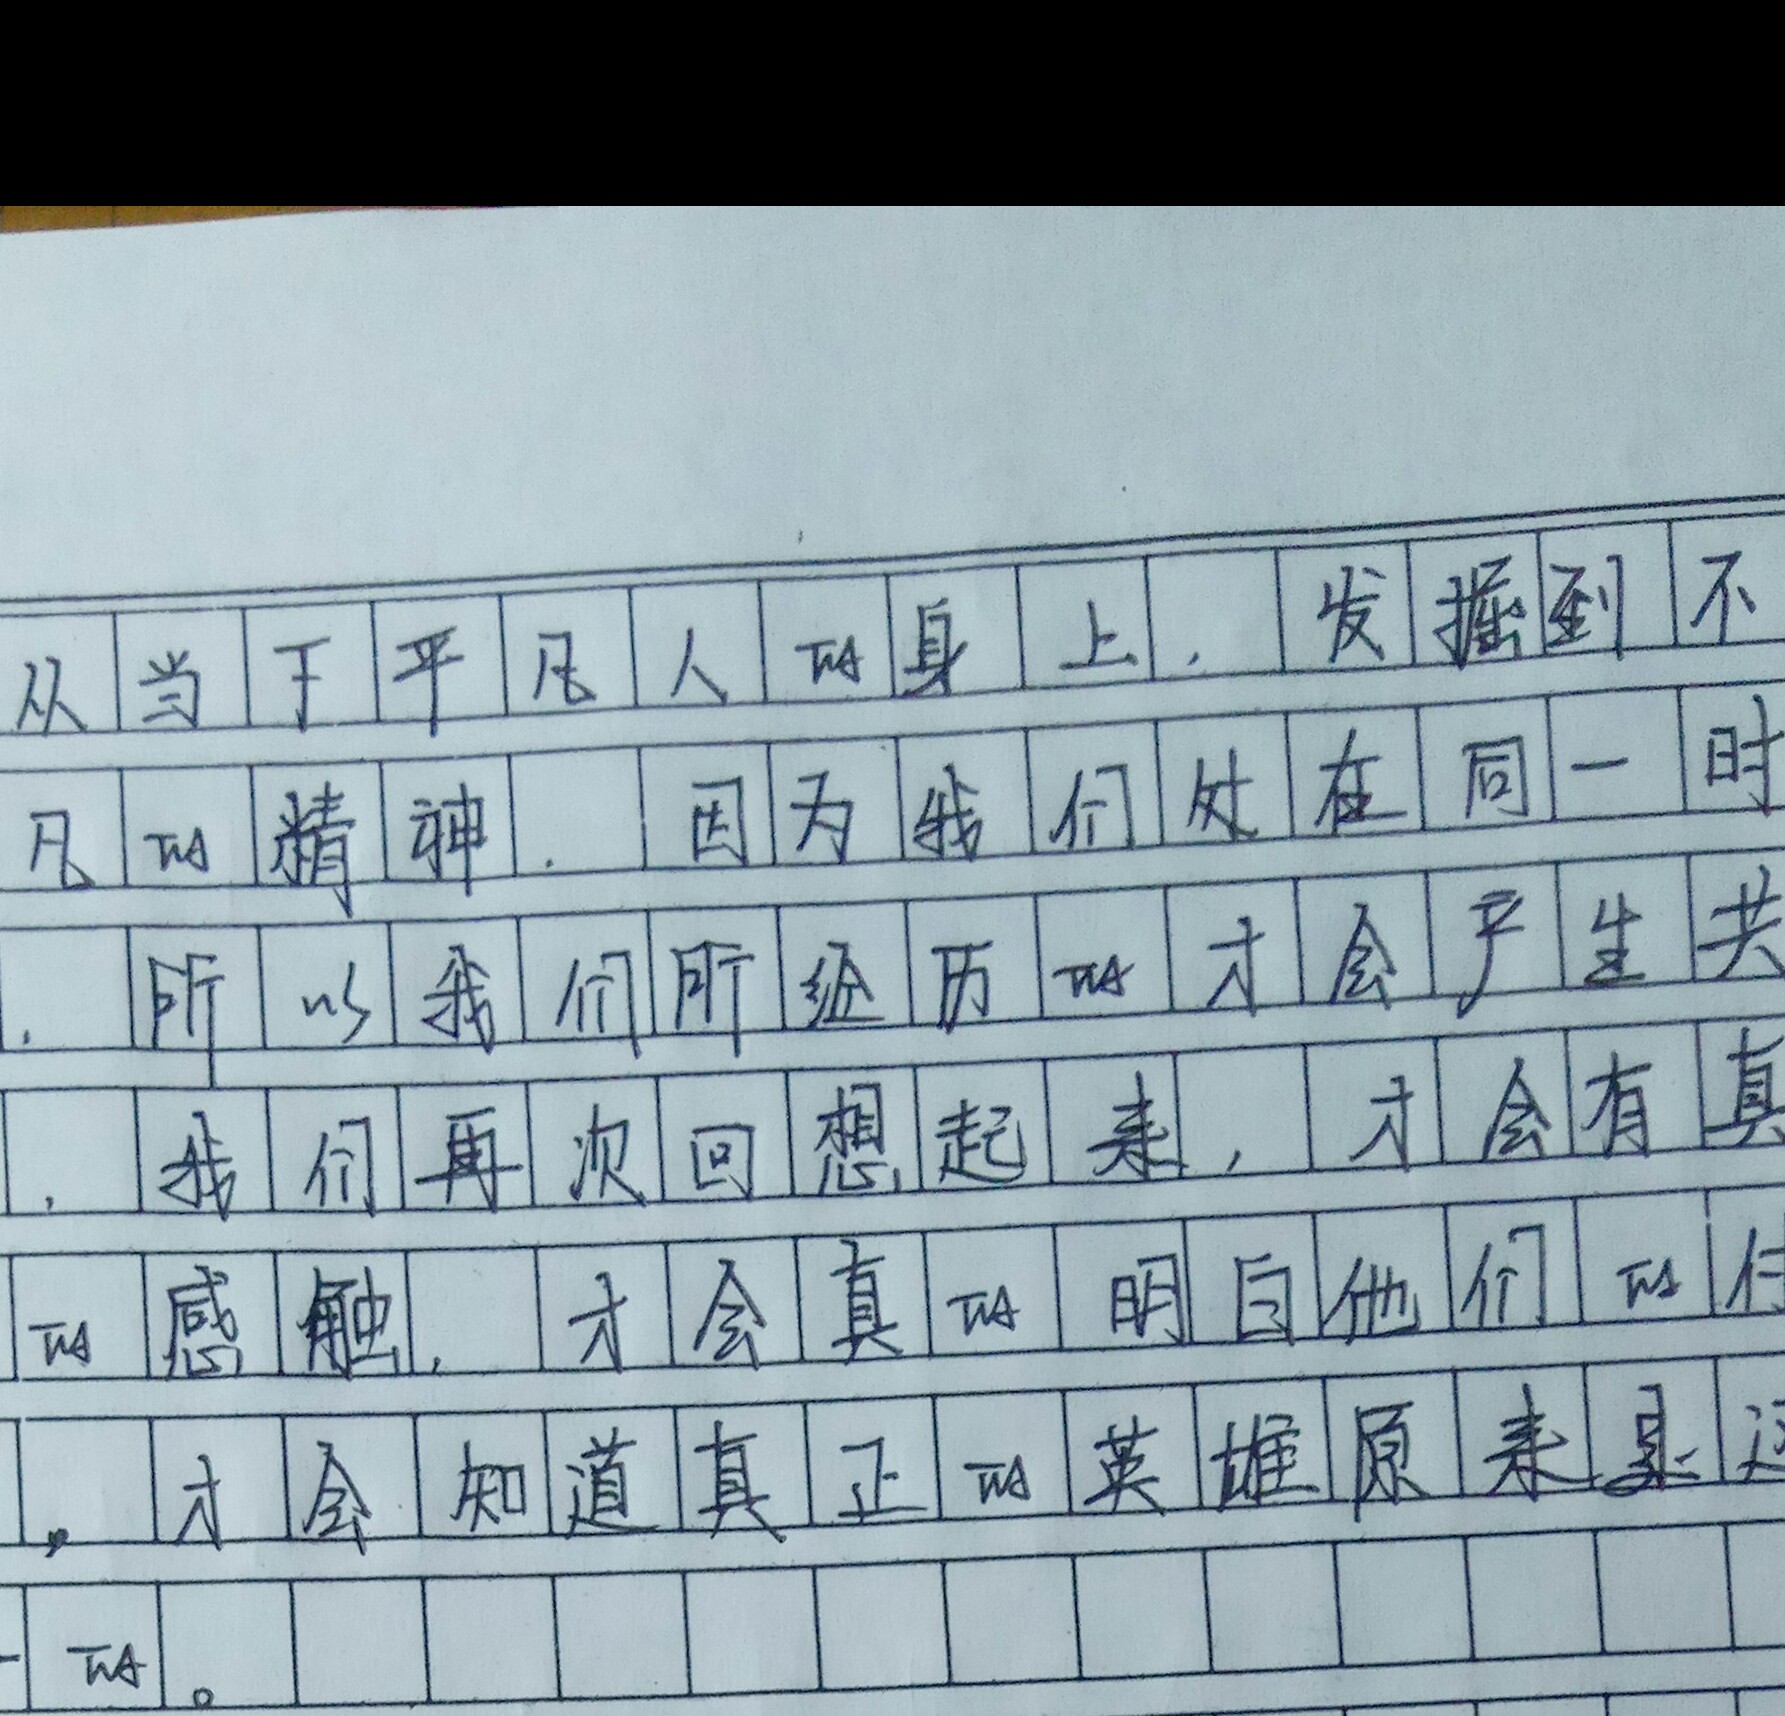 从当于平凡人的身上，发掘到不
凡的精神，因为我们处在同一时
，所以我们所经历的才会产生共
，我们再次回想起来，才会有真
的感触，才会真的明白他们的付
，才会知道真正的英雄原来是这
的。